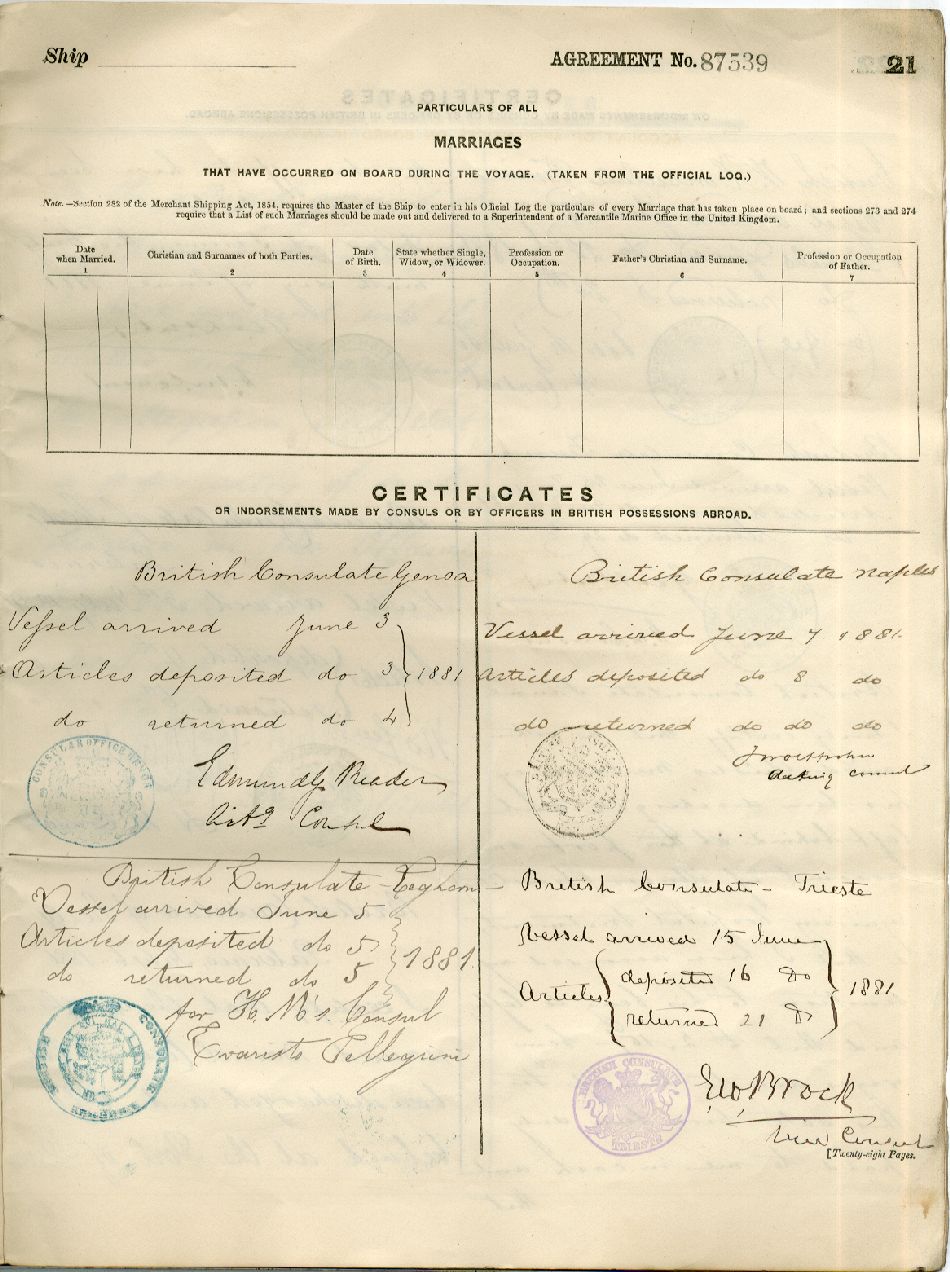 Ship
AGREEMENT No. 87539
21
PARTICULARS OF ALL
MARRIAGES
THAT HAVE OCCURRED ON BOARD DURING THE VOYAGE. (TAKEN FROM THE OFFICIAL LOG.)
Note.—Section 282 of the Merchant Shipping Act, 1854, requires the Master of the Ship to enter in his Official Log the particulars of every Marriage that has taken place on board; and sections 273 and 274
require that a List of such Marriages should be made out and delivered to a Superintendent of a Mercantile Marine Office in the United Kingdom.
Date when Married. 1
Christian and Surnames of both Parties. 2
Date of Birth. 3
State whether Single, Widow, or Widower. 4
Profession or Occupation. 5
Father's Christian and Surname. 6
Profession or Occupation of Father. 7
CERTIFICATES
OR INDORSEMENTS MADE BY CONSULS OR BY OFFICERS IN BRITISH POSSESSIONS ABROAD.
British Consulate Genoa
Vessel arrived June 3
Articles deposited do 3 1881
do returned do 4
Edmund G Reader
Consul
CONSULAR OFFICE GENOA
British Consulate Leghorn
Vessel arrived June 5
Articles deposited do 5
do returned do 5 1881
for H. M's Consul
Evaristo Pellegrini
British Consulate Naples
Vessel arrived June 7 1881
Articles deposited do 8 do
do returned do do do
Acting Consul
British Consulate - Trieste
Vessel arrived 15 June
Articles deposited 16 Do 1881
returned 21 Do
E W Brock
Vice Consul
BRITISH CONSULATE
TRIESTE
[Twenty-eight Pages.